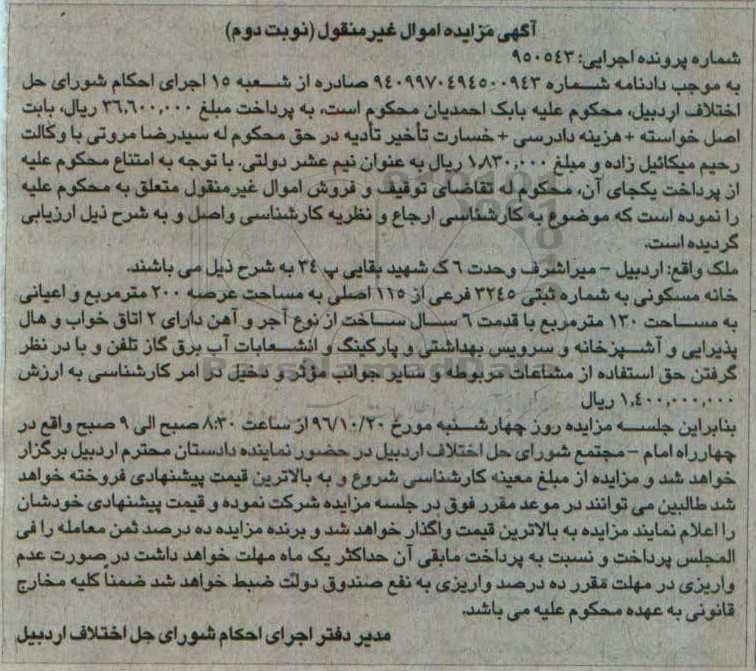 آگهی مزایده اموال غیرمنقول (نوبت دوم)
شماره پرونده اجرایی: ۹۵۰۵۴۳
به موجب دادنامه شماره ۹۴۰۹۹۷۰۴۹۴۵۰۰۹۴۳ صادره از شعبه ۱۵ اجرای احکام شورای حل
اختلاف اردبیل، محکوم علیه بابک احمدیان محکوم است، به پرداخت مبلغ ۳۶,۶۰۰,۰۰۰ ریال، بابت
اصل خواسته + هزینه دادرسی + خسارت تأخیر تأدیه در حق محکوم له سیدرضا مروتی با وکالت
رحیم میکائیل زاده و مبلغ ۱,۸۳۰,۰۰۰ ریال به عنوان نیم عشر دولتی. با توجه به امتناع محکوم علیه
از پرداخت یکجای آن، محکوم له تقاضای توقیف و فروش اموال غیرمنقول متعلق به محکوم علیه
را نموده است که موضوع به کارشناسی ارجاع و نظریه کارشناسی واصل و به شرح ذیل ارزیابی
گردیده است.
ملک واقع: اردبیل - میراشرف وحدت ٦ ک شهید بقایی پ ۳٤ به شرح ذیل می باشند.
خانه مسکونی به شماره ثبتی ۳۲٤٥ فرعی از ۱۱٥ اصلی به مساحت عرصه ۲۰۰ مترمربع و اعیانی
به مساحت ۱۳۰ مترمربع با قدمت ٦ سال ساخت از نوع آجر و آهن دارای ۲ اتاق خواب و هال
پذیرایی و آشپزخانه و سرویس بهداشتی و پارکینگ و انشعابات آب برق گاز تلفن و با در نظر
گرفتن حق استفاده از مشاعات مربوطه و سایر جوانب مؤثر و دخیل در امر کارشناسی به ارزش
۱,٤۰۰,۰۰۰,۰۰۰ ریال
بنابراین جلسه مزایده روز چهارشنبه مورخ ۹۶/۱۰/۲۰ از ساعت ۸:۳۰ صبح الی ۹ صبح واقع در
چهارراه امام - مجتمع شورای حل اختلاف اردبیل در حضور نماینده دادستان محترم اردبیل برگزار
خواهد شد و مزایده از مبلغ معینه کارشناسی شروع و به بالاترین قیمت پیشنهادی فروخته خواهد
شد طالبین می توانند در موعد مقرر فوق در جلسه مزایده شرکت نموده و قیمت پیشنهادی خودشان
را اعلام نمایند مزایده به بالاترین قیمت واگذار خواهد شد و برنده مزایده ده درصد ثمن معامله را فی
المجلس پرداخت و نسبت به پرداخت مابقی آن حداکثر یک ماه مهلت خواهد داشت در صورت عدم
واریزی در مهلت مقرر ده درصد واریزی به نفع صندوق دولت ضبط خواهد شد ضمناً کلیه مخارج
قانونی به عهده محکوم علیه می باشد.
مدیر دفتر اجرای احکام شورای حل اختلاف اردبیل